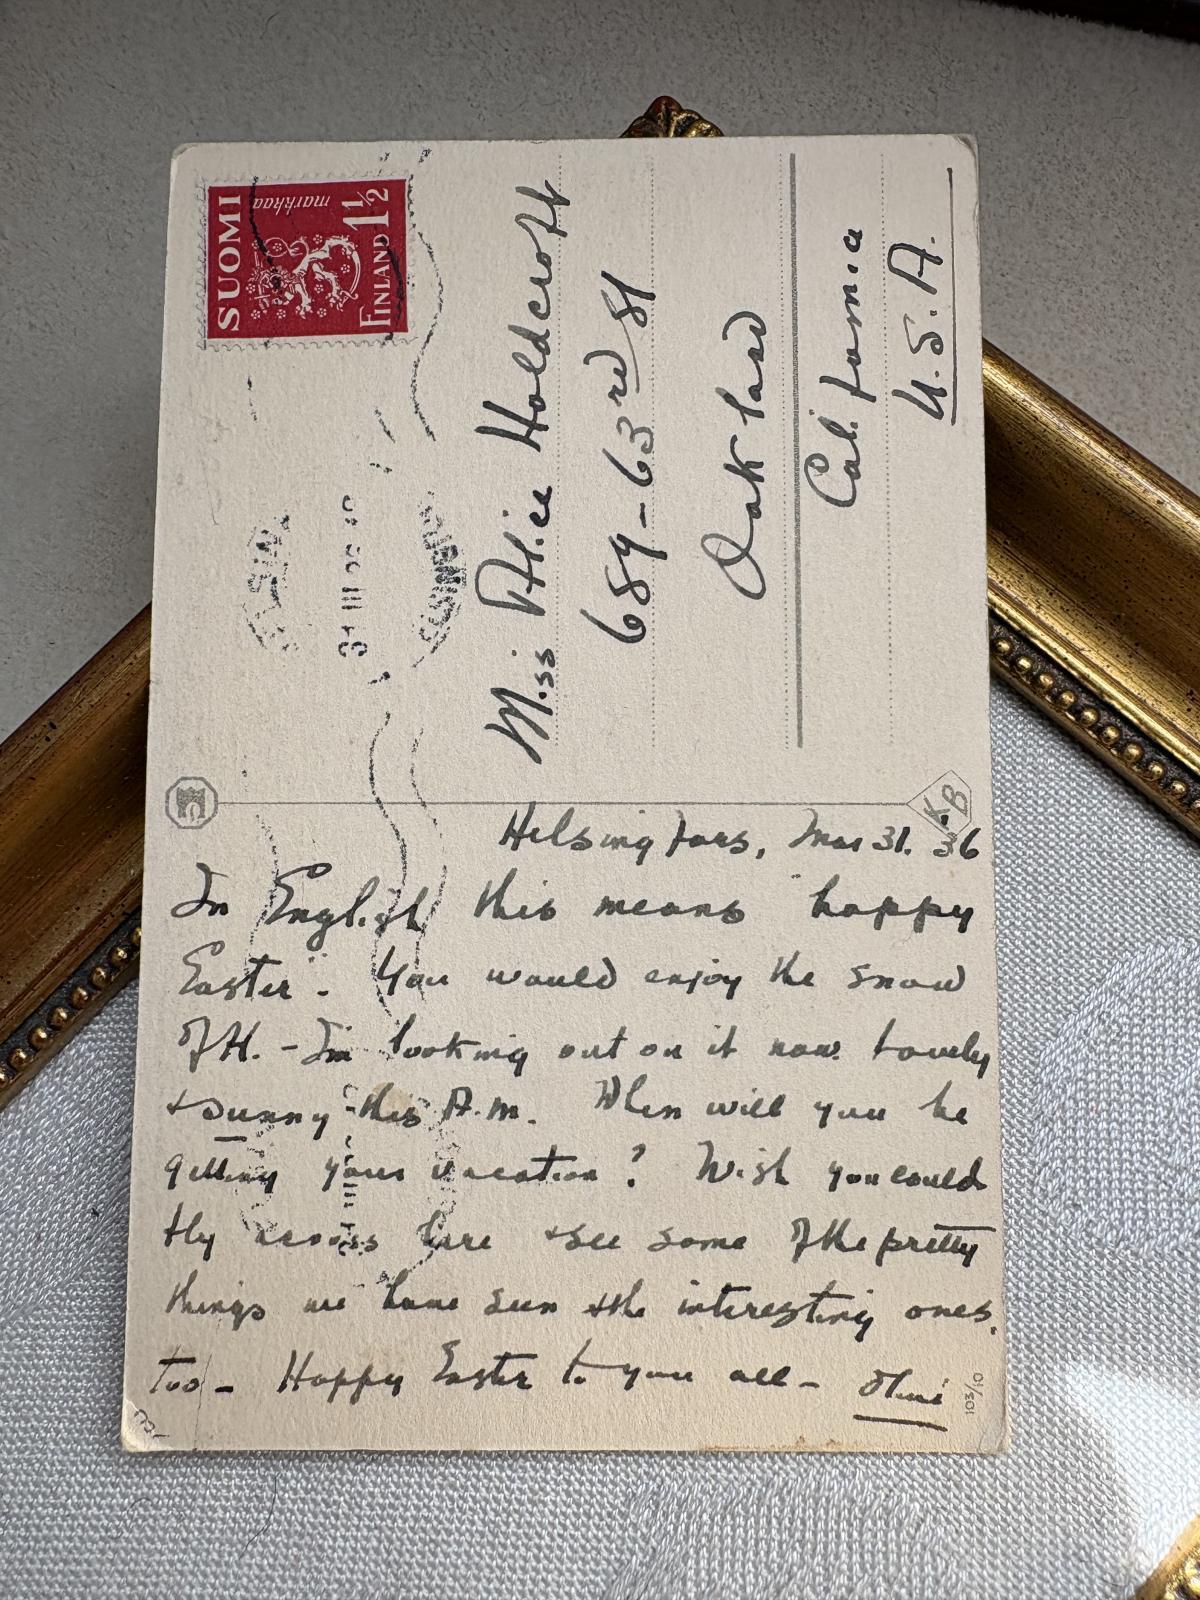 SUOMI
markkaa
1½
FINLAND
31 III
Miss Alice Holdcroft
689-63rd St
Oakland
California
U.S.A.
KB
Helsingfors, Mar 31. 36
In English this means happy
Easter. You would enjoy the snow
of H. - I'm looking out on it now. Lovely
+ sunny this A.M. When will you be
getting your vacation? Wish you could
fly across here + see some of the pretty
things we have seen + the interesting ones,
too - Happy Easter to you all -
103/10